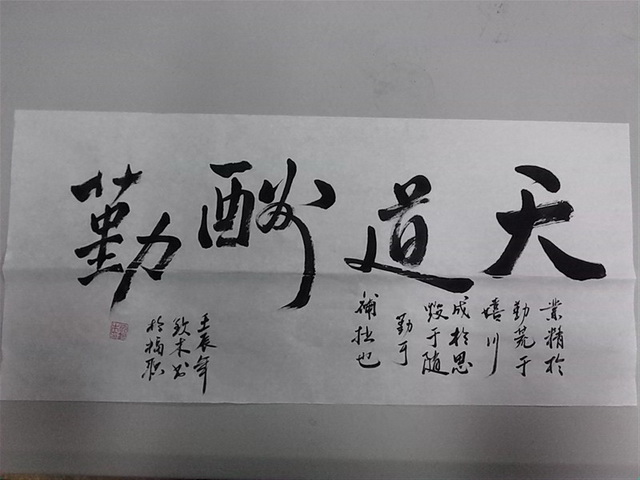 天道酬勤
業精於
勤荒于
嬉行
成於思
毀于随
勤可
補拙也
壬辰年
致木书
於福